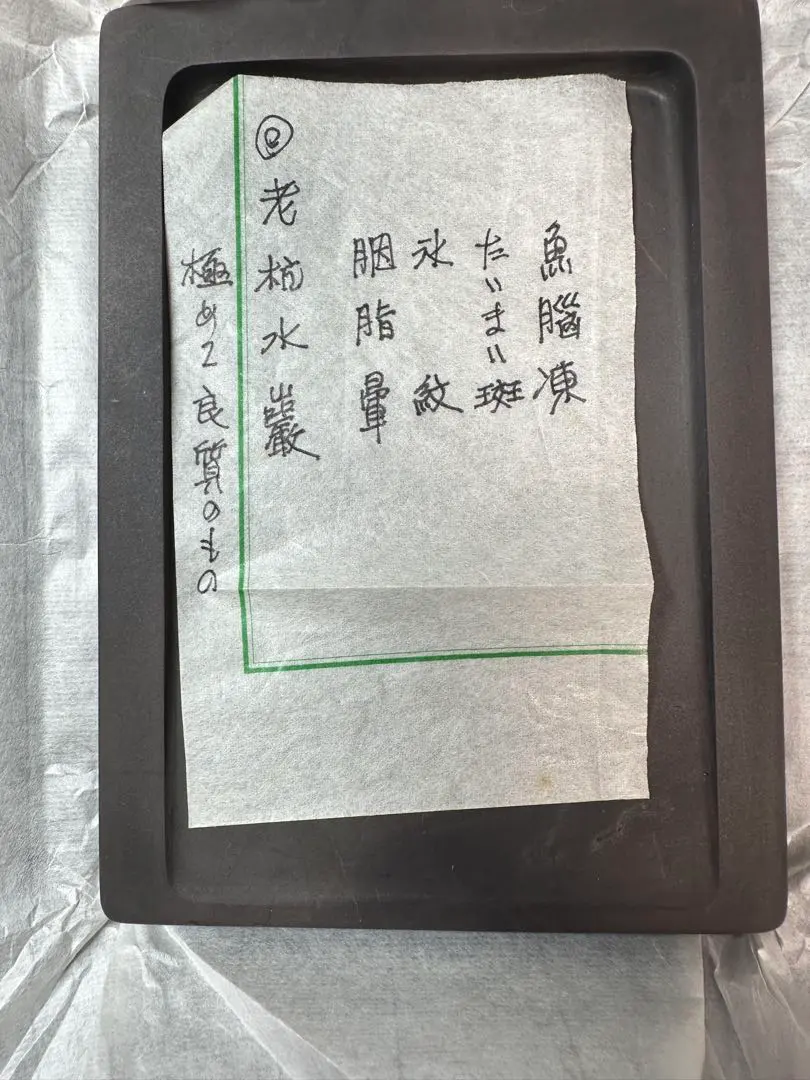 魚腦凍
たいまい斑
氷紋
胭脂暈
老杭水巖
極めて良質のもの